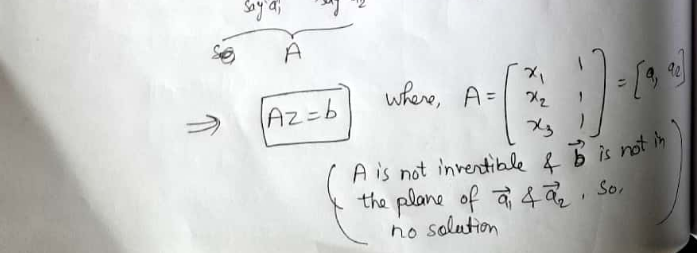 say a₁ say a₂
So A
⇒ Az = b where, A = [x₁ 1
x₂ 1
x₃ 1] = [a₁ a₂]
(A is not invertible & b⃗ is not in
the plane of a⃗₁ & a⃗₂. So,
no solution)